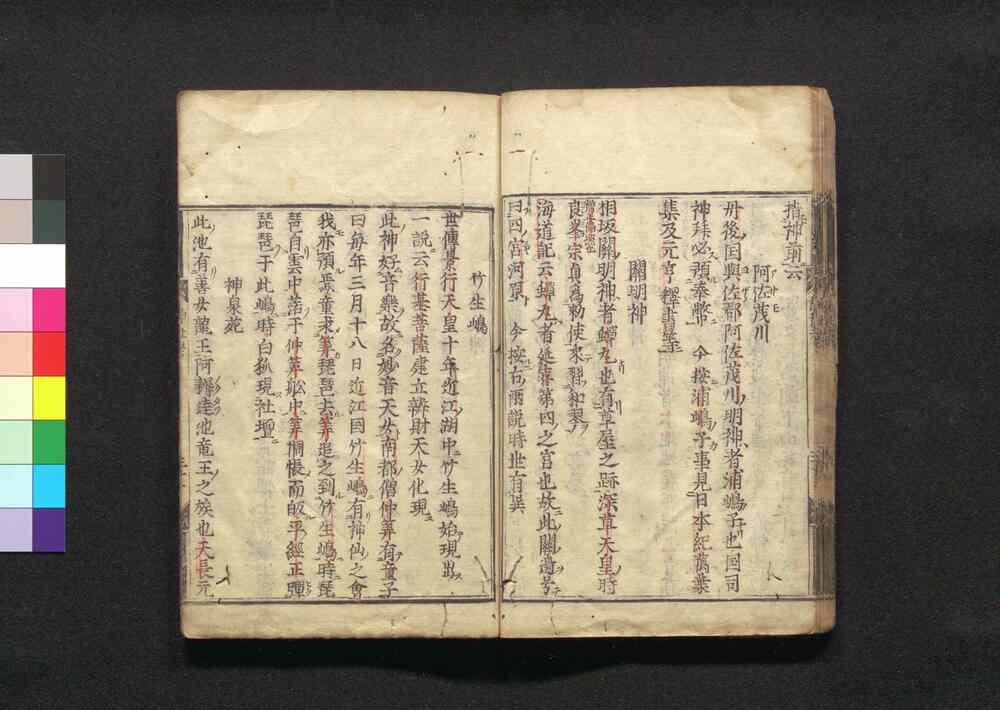 指神前云
阿佐茂川
丹後国與佐郡阿佐茂川明神者浦嶋子也国司
神拜必須奉幣 今按浦嶋子事見日本紀萬葉
集及元亨釋書等
關明神
相坂關明神者蟬丸也有草屋之跡深草天皇時
良峯宗貞為勅使來習和琴
海道記云蟬丸者延喜第四之宮也故此關邊号
曰四宮河原 今按右兩說時世有異
竹生嶋
世傳景行天皇十年近江湖中竹生嶋始現出
一說云行基菩薩建立辨財天女化現
此神好音樂故名妙音天女南都僧仲筭有童子
曰每年三月十八日近江国竹生嶋有神仙之會
我亦預焉童乘筭琵琶去筭追之到竹生嶋時琵
琶自雲中落于仲筭舩中筭惆悵而皈平經正彈
琵琶于此嶋時白狐現社壇
神泉苑
此池有善女龍王阿耨達池竜王之族也天長元